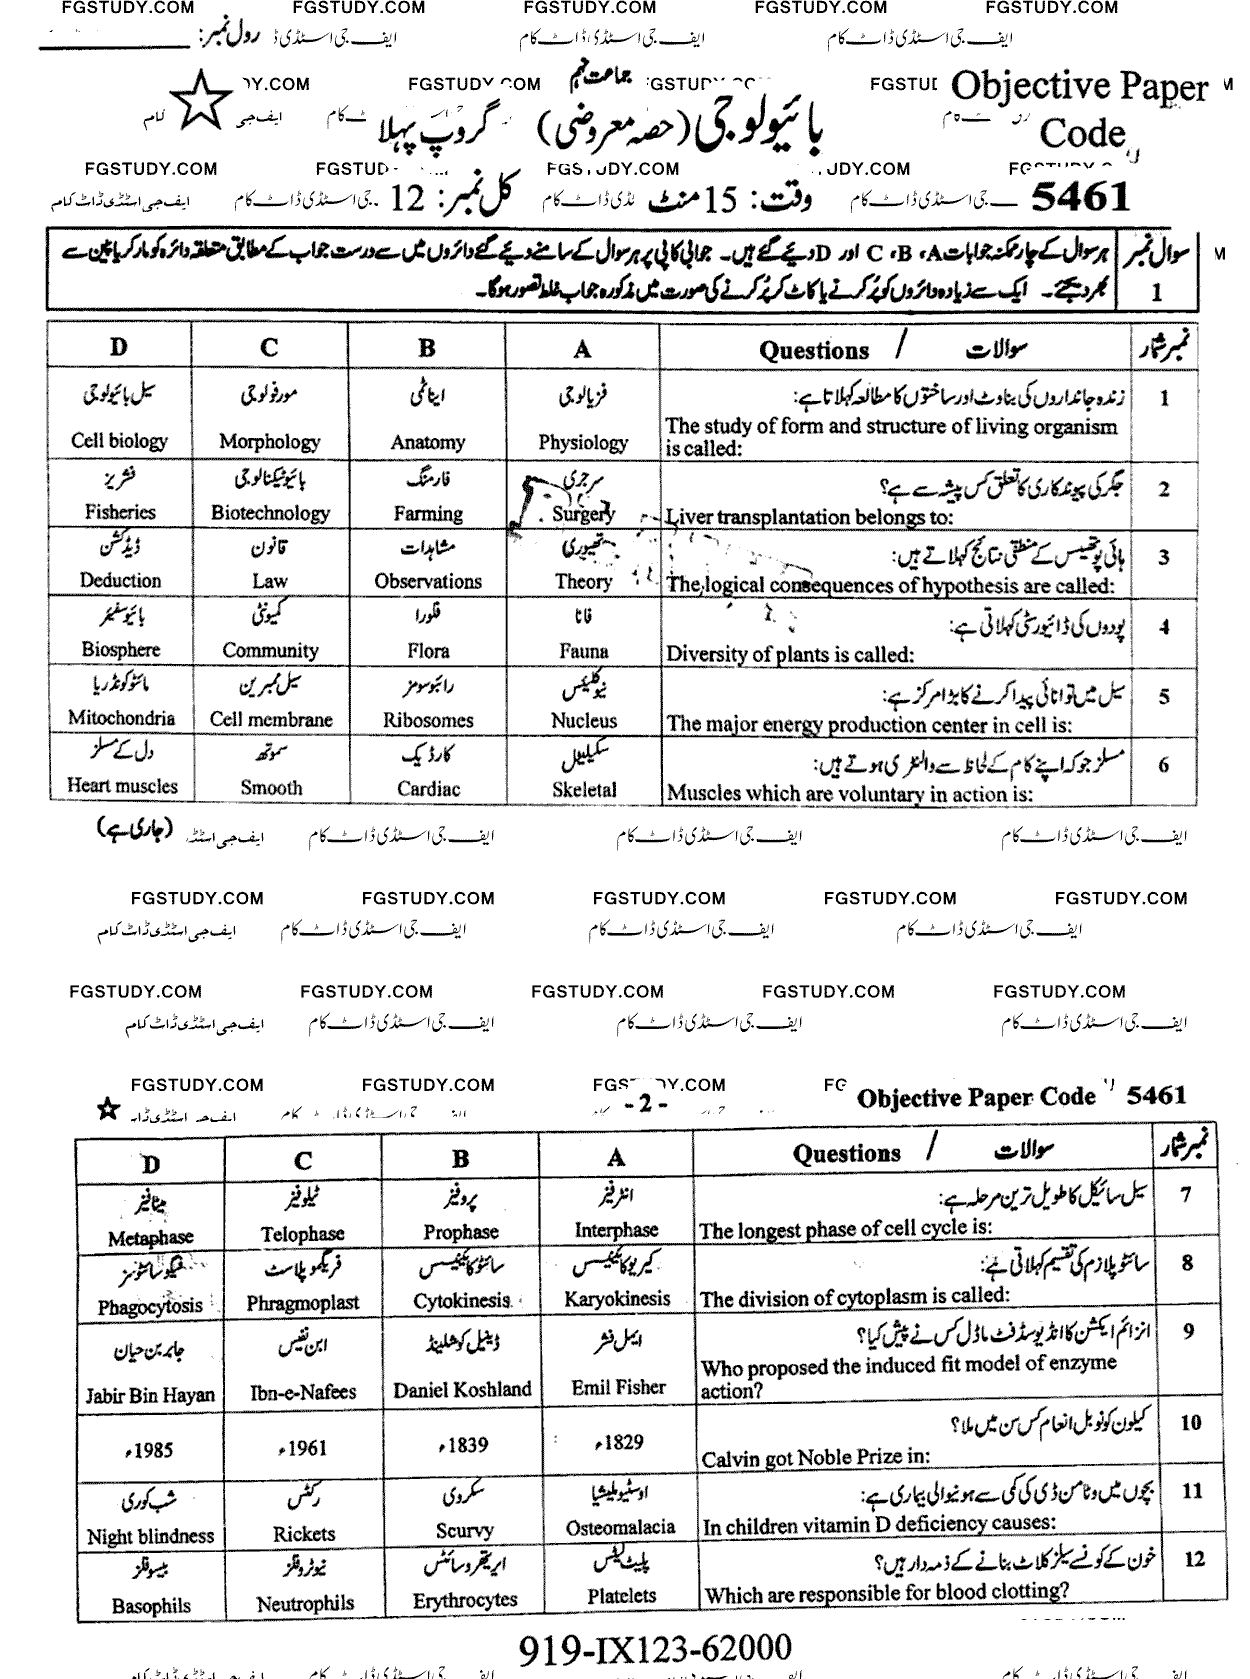 FGSTUDY.COM FGSTUDY.COM FGSTUDY.COM FGSTUDY.COM FGSTUDY.COM
رول نمبر: ایف جی اسٹڈی ڈاٹ کام ایف جی اسٹڈی ڈاٹ کام
جماعت نہم
Objective Paper
بائیولوجی (حصہ معروضی) گروپ پہلا
Code
FGSTUDY.COM
وقت: 15 منٹ کل نمبر: 12
5461
سوال نمبر 1
ہر سوال کے چار ممکنہ جوابات A، B، C اور D دیئے گئے ہیں۔ جوابی کاپی پر ہر سوال کے سامنے دیئے گئے دائروں میں سے درست جواب کے مطابق متعلقہ دائرہ کو مارکر یا پین سے
بھر دیجئے۔ ایک سے زیادہ دائروں کو پُر کرنے یا کاٹ کر پُر کرنے کی صورت میں مذکورہ جواب غلط تصور ہوگا۔
D C B A Questions / سوالات نمبر شمار
سیل بائیولوجی مورفولوجی ایناٹمی فزیالوجی زندہ جانداروں کی بناوٹ اور ساختوں کا مطالعہ کہلاتا ہے: 1
Cell biology Morphology Anatomy Physiology The study of form and structure of living organism
is called:
فشریز بائیوٹیکنالوجی فارمنگ سرجری جگر کی پیوندکاری کا تعلق کس پیشہ سے ہے؟ 2
Fisheries Biotechnology Farming Surgery Liver transplantation belongs to:
ڈیڈکشن قانون مشاہدات تھیوری ہائپوتھیسس کے منطقی نتائج کہلاتے ہیں: 3
Deduction Law Observations Theory The logical consequences of hypothesis are called:
بائیوسفیئر کمیونٹی فلورا فانا پودوں کی ڈائیورسٹی کہلاتی ہے: 4
Biosphere Community Flora Fauna Diversity of plants is called:
مائٹوکونڈریا سیل ممبرین رائبوسومز نیوکلیئس سیل میں توانائی پیدا کرنے کا بڑا مرکز ہے: 5
Mitochondria Cell membrane Ribosomes Nucleus The major energy production center in cell is:
دل کے مسلز سموتھ کارڈیک سکیلیٹل مسلز جو کہ اپنے کام کے لحاظ سے والنٹری ہوتے ہیں: 6
Heart muscles Smooth Cardiac Skeletal Muscles which are voluntary in action is:
(جاری ہے) ایف جی اسٹڈی ڈاٹ کام ایف جی اسٹڈی ڈاٹ کام ایف جی اسٹڈی ڈاٹ کام
FGSTUDY.COM FGSTUDY.COM FGSTUDY.COM FGSTUDY.COM FGSTUDY.COM
ایف جی اسٹڈی ڈاٹ کام ایف جی اسٹڈی ڈاٹ کام ایف جی اسٹڈی ڈاٹ کام ایف جی اسٹڈی ڈاٹ کام
FGSTUDY.COM FGSTUDY.COM FGSTUDY.COM FGSTUDY.COM FGSTUDY.COM
ایف جی اسٹڈی ڈاٹ کام ایف جی اسٹڈی ڈاٹ کام ایف جی اسٹڈی ڈاٹ کام ایف جی اسٹڈی ڈاٹ کام
FGSTUDY.COM FGSTUDY.COM
- 2 - Objective Paper Code 5461
D C B A Questions / سوالات نمبر شمار
میٹافیز ٹیلوفیز پروفیز انٹرفیز سیل سائیکل کا طویل ترین مرحلہ ہے: 7
Metaphase Telophase Prophase Interphase The longest phase of cell cycle is:
فیگوسائٹوسز فریگموپلاسٹ سائٹوکائینیسس کیریوکائینیسس سائٹوپلازم کی تقسیم کہلاتی ہے: 8
Phagocytosis Phragmoplast Cytokinesis Karyokinesis The division of cytoplasm is called:
جابر بن حیان ابن نفیس ڈینیل کوشلینڈ ایمل فشر انزائم ایکشن کا انڈیوسڈ فٹ ماڈل کس نے پیش کیا؟ 9
Jabir Bin Hayan Ibn-e-Nafees Daniel Koshland Emil Fisher Who proposed the induced fit model of enzyme
action?
1985ء 1961ء 1839ء 1829ء کیلون کو نوبل انعام کس سن میں ملا؟ 10
Calvin got Noble Prize in:
شب کوری رکٹس سکروی اوسٹیوملیشیا بچوں میں وٹامن ڈی کی کمی سے ہونیوالی بیماری ہے: 11
Night blindness Rickets Scurvy Osteomalacia In children vitamin D deficiency causes:
بیسوفلز نیوٹروفلز اریتھروسائٹس پلیٹ لیٹس خون کے کونسے سیلز کلاٹ بنانے کے ذمہ دار ہیں؟ 12
Basophils Neutrophils Erythrocytes Platelets Which are responsible for blood clotting?
919-IX123-62000